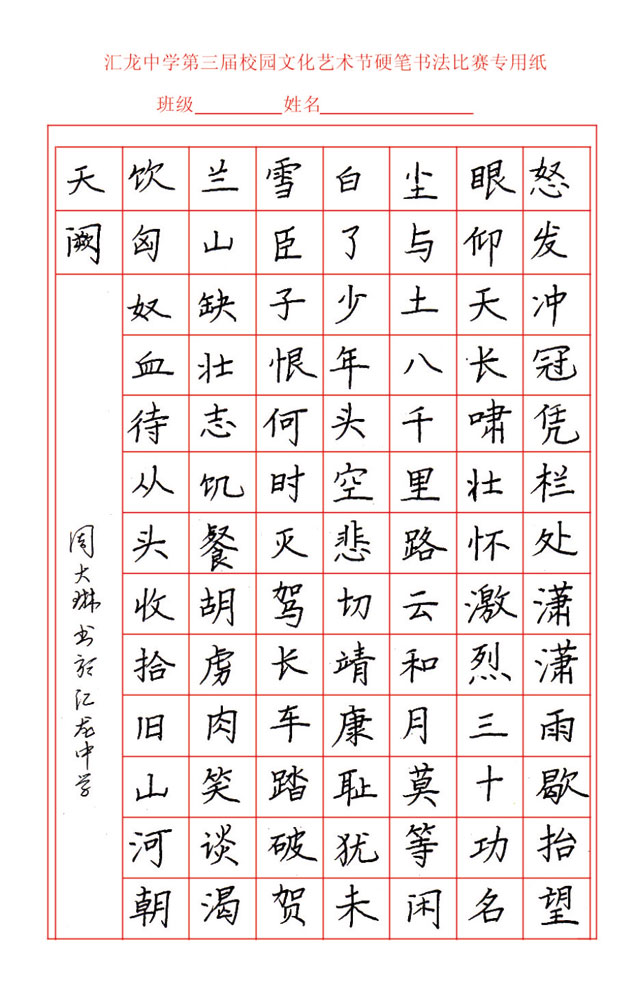 汇龙中学第三届校园文化艺术节硬笔书法比赛专用纸
班级 姓名
怒发冲冠凭栏处潇潇雨歇抬望
眼仰天长啸壮怀激烈三十功名
尘与土八千里路云和月莫等闲
白了少年头空悲切靖康耻犹未
雪臣子恨何时灭驾长车踏破贺
兰山缺壮志饥餐胡虏肉笑谈渴
饮匈奴血待从头收拾旧山河朝
天阙
周大琳书於汇龙中学